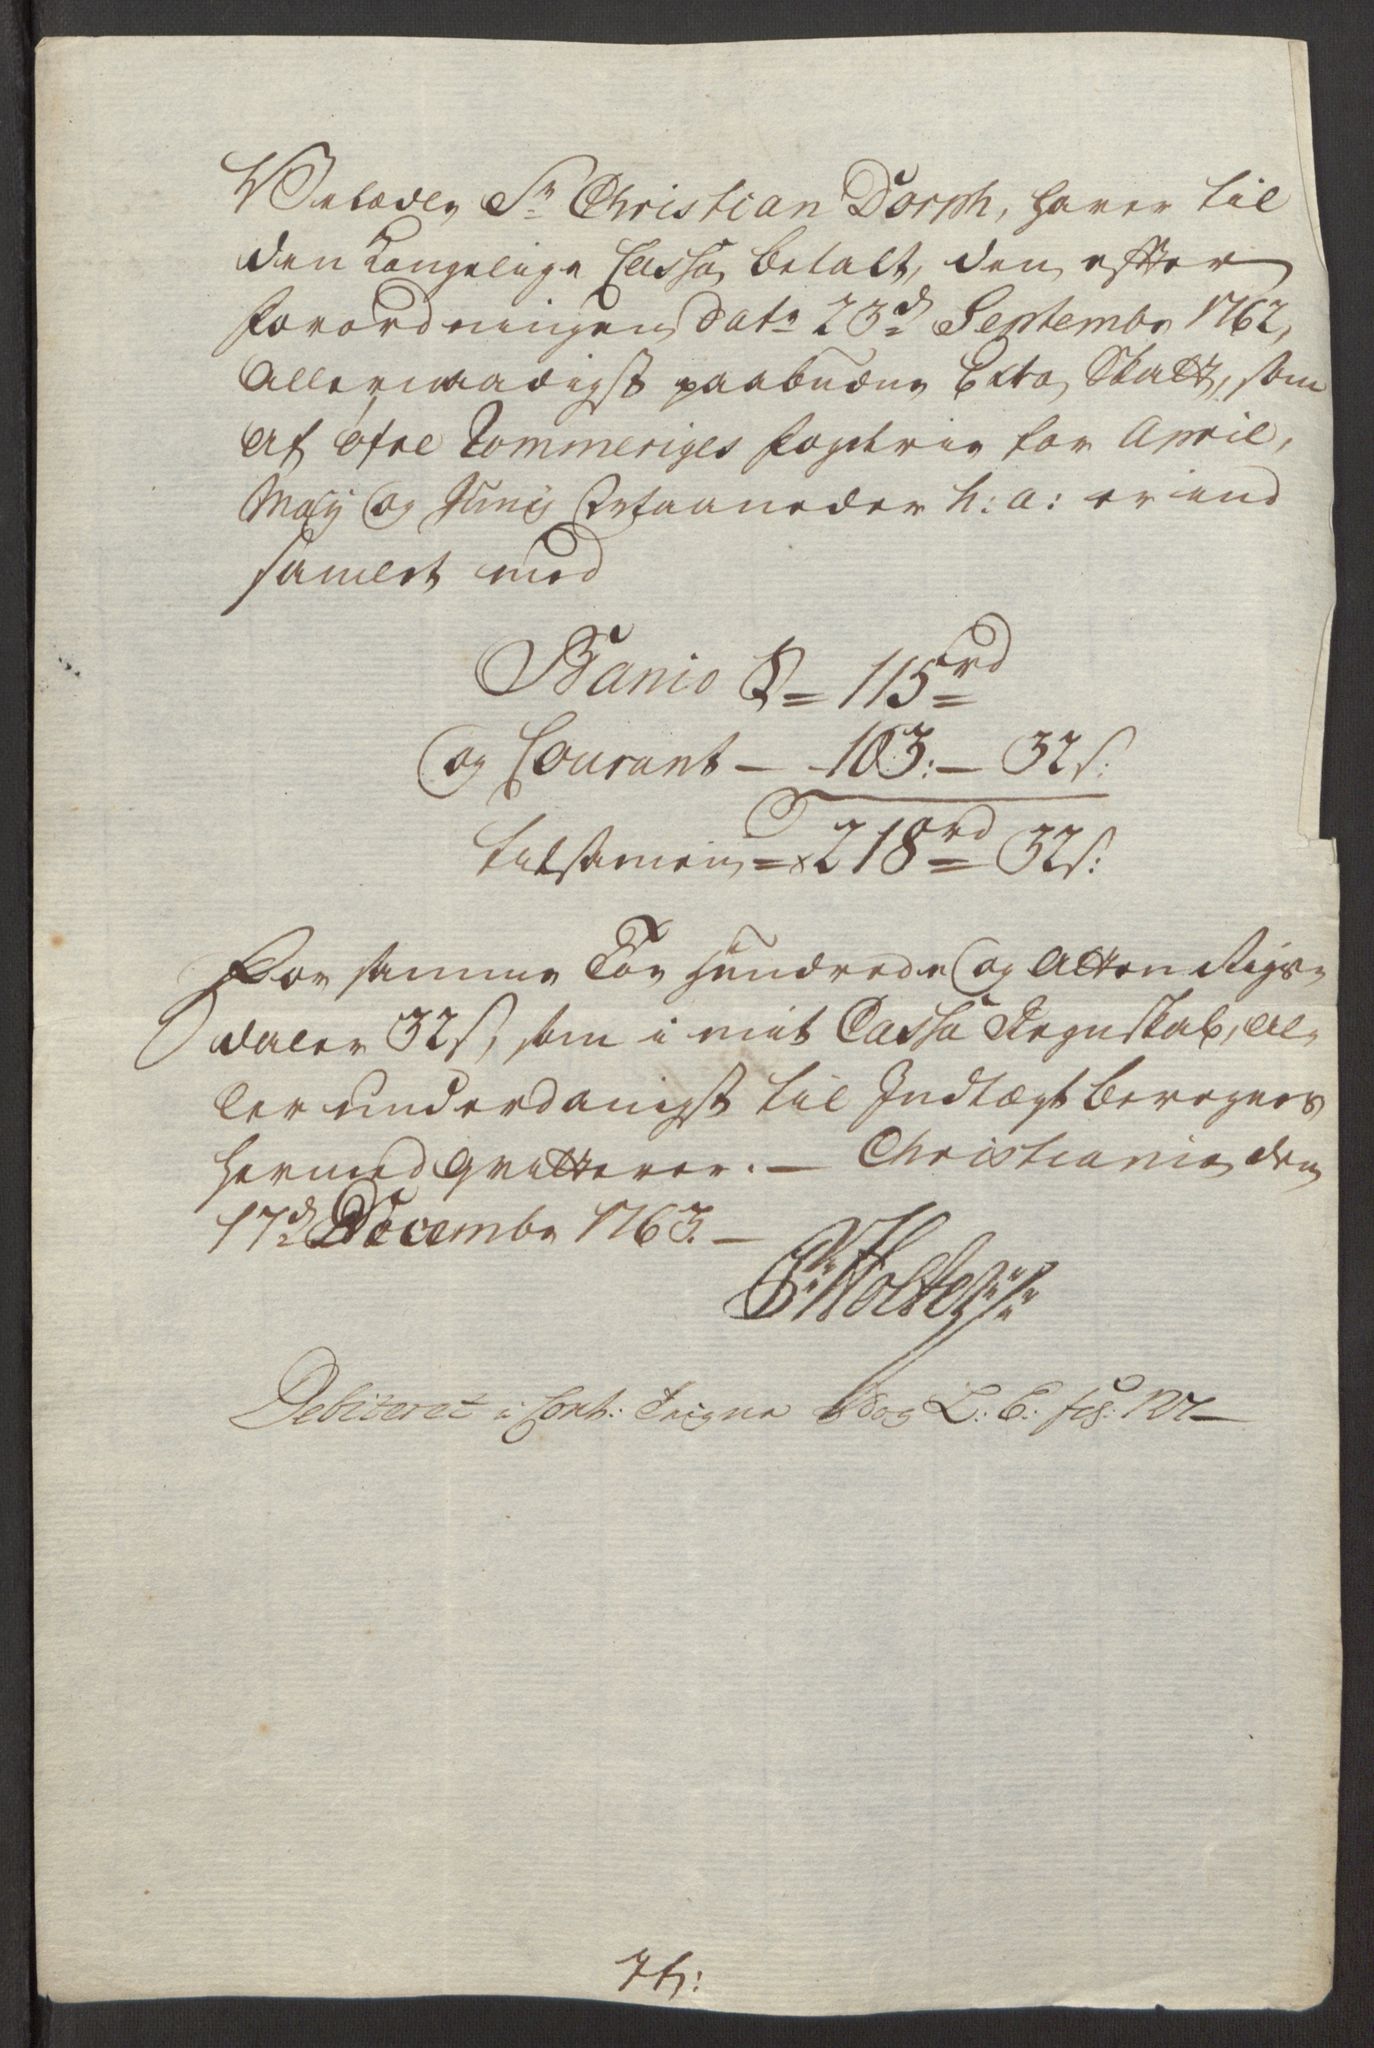 Velædle Sr Christian Dorph, haver til
den Kongelige Cassa betalt, den efter
Forordningen Dat: 23d Septembr 1762,
Allernaadigst paabudne Exta Skatt, som
af Øfre Rommeriges Fogderie for April,
Maij og Junij Maaneder h: a: er ind
samlet med
Banco S = 115 rd
og Courant — 103: — 32 s:
tilsamen = 218 rd 32 s:
For samme Toe Hundrede og Atten Rigs-
daler 32 s, som i mit Cassa Regnskab, al-
ler underdanigst til Indtægt beregnes
hermed qvitterer. — Christiania den
17d Decembr 1763. —
Holter
Debiteret i Cont: L: C: fol: 127 —
7 f: